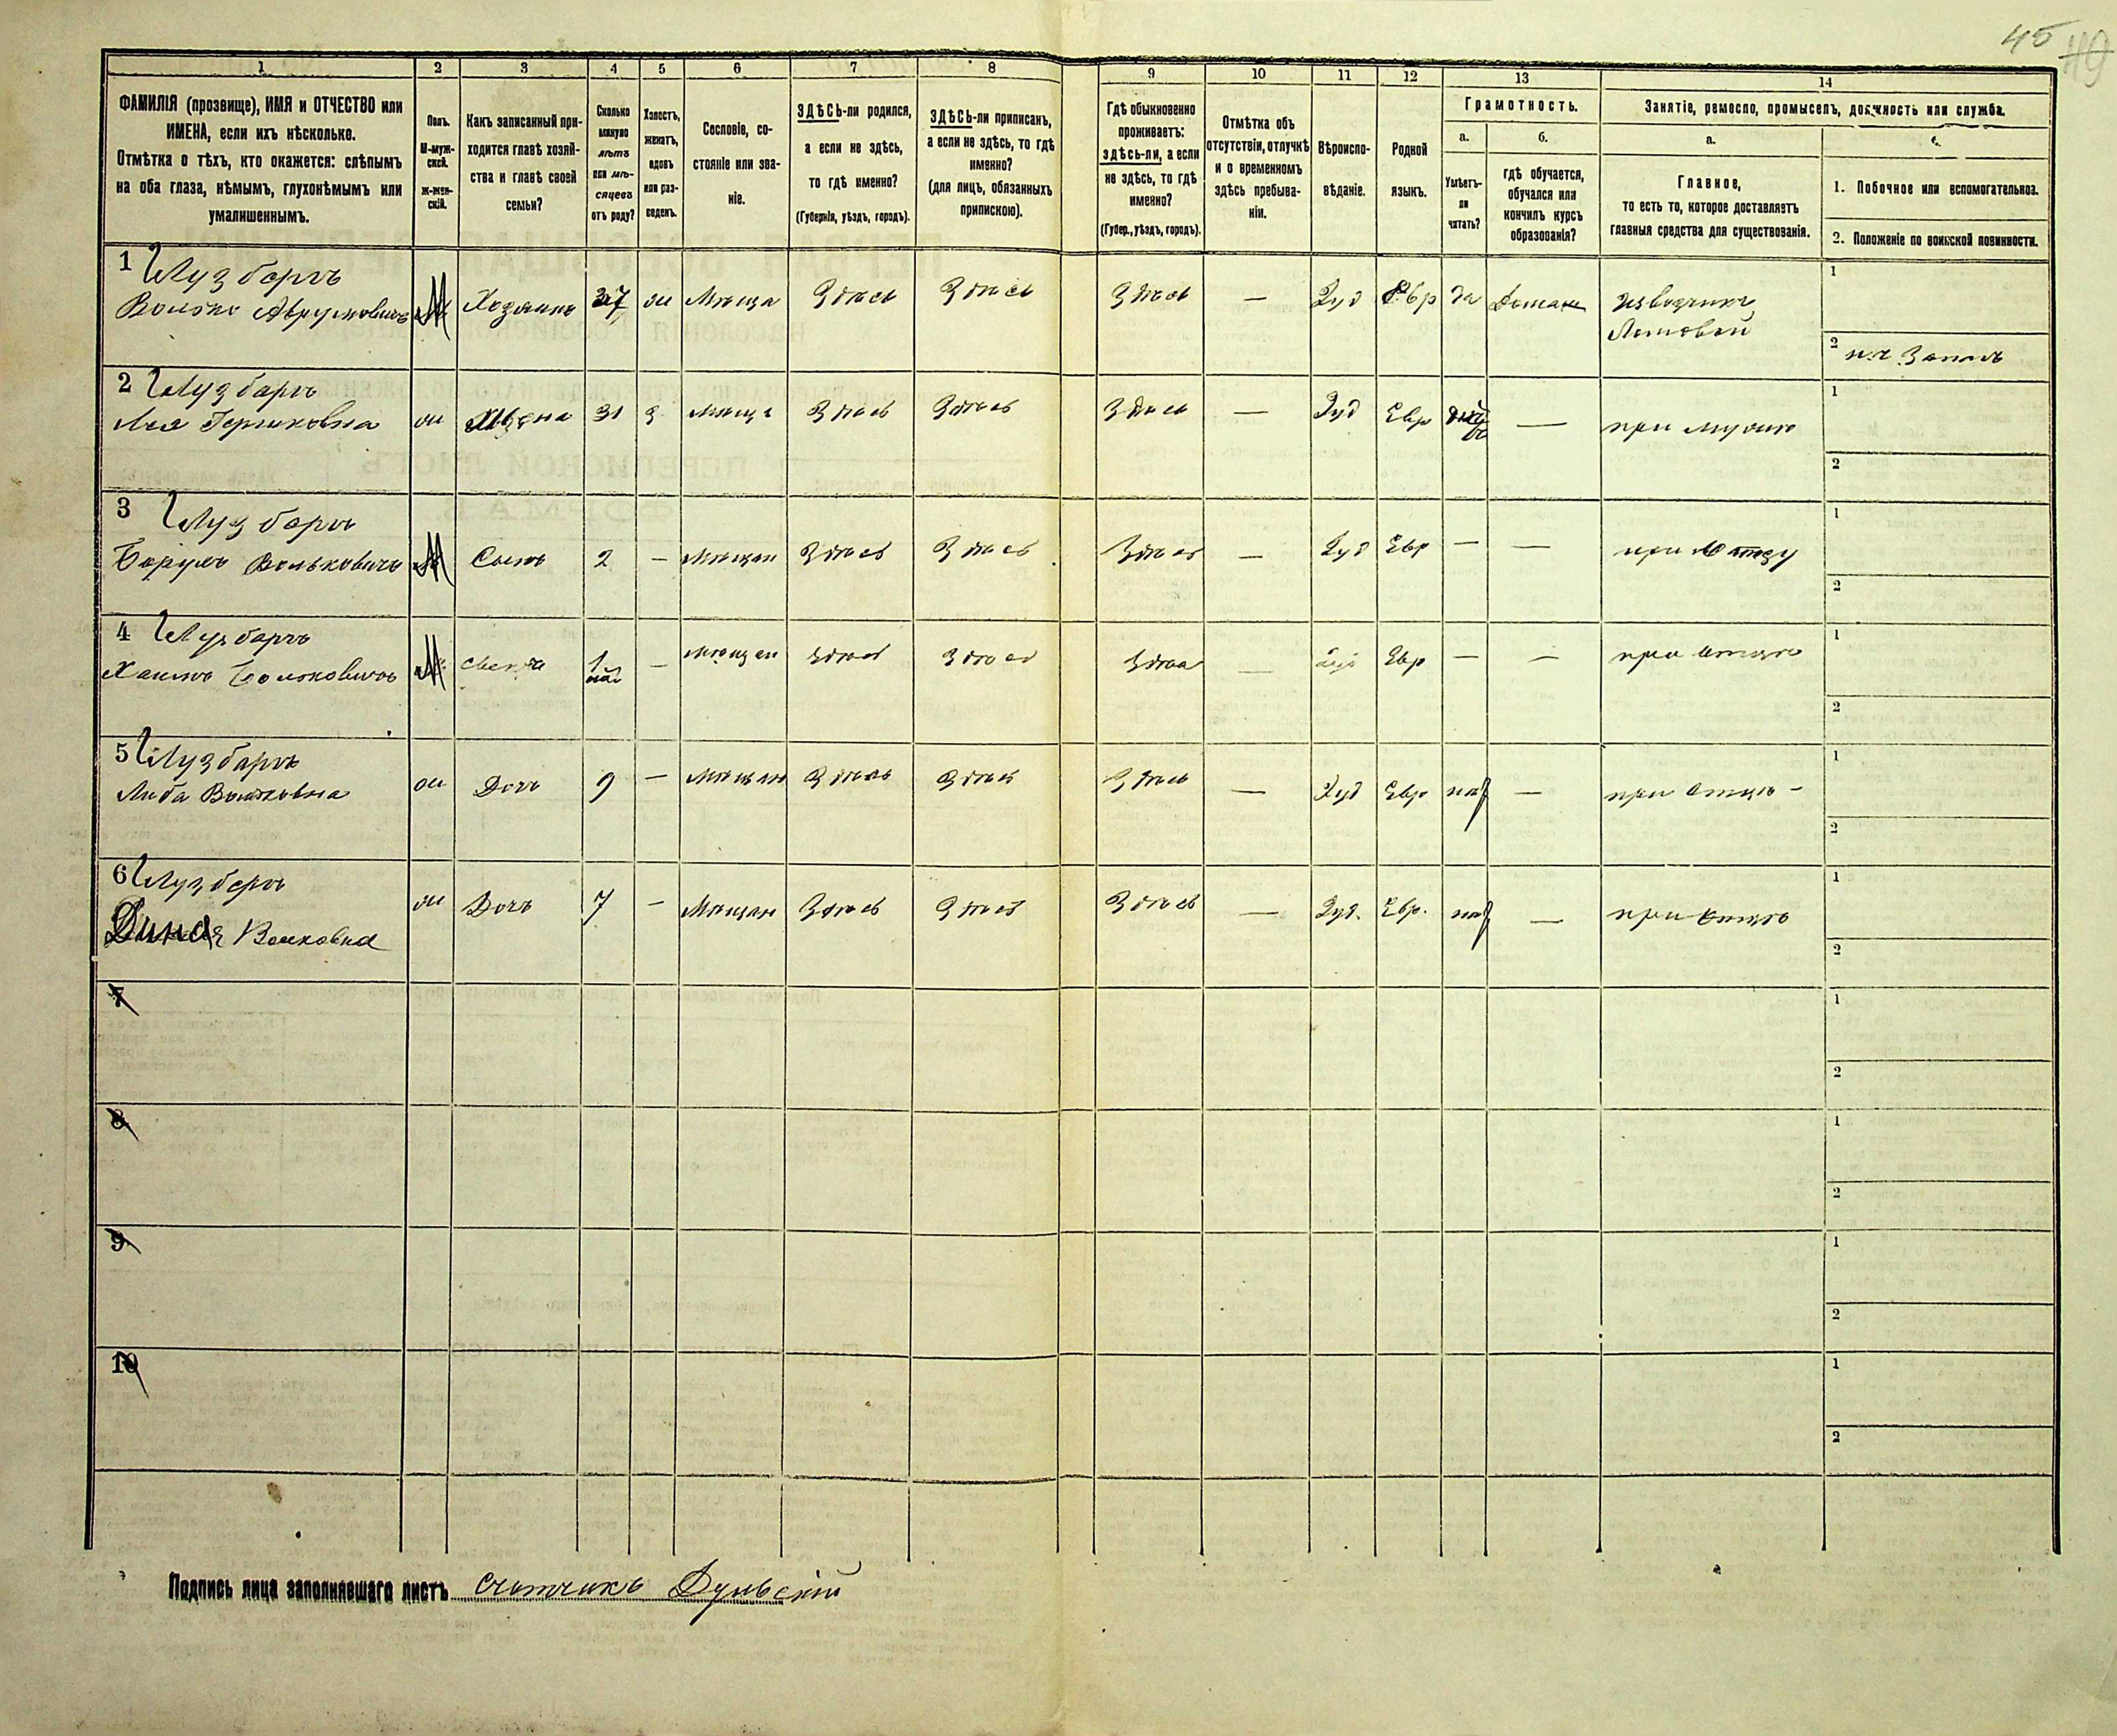 45
49
1 2 3 4 5 6 7 8 9 10 11 12 13 14
ФАМИЛІЯ (прозвище), ИМЯ и ОТЧЕСТВО или
ИМЕНА, если ихъ нѣсколько.
Отмѣтка о тѣхъ, кто окажется: слѣпымъ
на оба глаза, нѣмымъ, глухонѣмымъ или
умалишеннымъ.
Полъ.
М-муж-
ской.
Ж-жен-
скій.
Какъ записанный при-
ходится главѣ хозяй-
ства и главѣ своей
семьи?
Сколько
минуло
лѣтъ
или мѣ-
сяцевъ
отъ роду?
Холостъ,
женатъ,
вдовъ
или раз-
веденъ.
Сословіе, со-
стояніе или зва-
ніе.
ЗДѢСЬ-ли родился,
а если не здѣсь,
то гдѣ именно?
(Губернія, уѣздъ, городъ).
ЗДѢСЬ-ли приписанъ,
а если не здѣсь, то гдѣ
именно?
(для лицъ, обязанныхъ
припискою).
Гдѣ обыкновенно
проживаетъ:
здѣсь-ли, а если
не здѣсь, то гдѣ
именно?
(Губер., уѣздъ, городъ).
Отмѣтка объ
отсутствіи, отлучкѣ
и о временномъ
здѣсь пребыва-
ніи.
Вѣроиспо-
вѣданіе.
Родной
языкъ.
Грамотность.
а.
Умѣетъ-
ли
читать?
б.
гдѣ обучается,
обучался или
кончилъ курсъ
образованія?
Занятіе, ремесло, промыселъ, должность или служба.
а.
Главное,
то есть то, которое доставляетъ
главныя средства для существованія.
1. Побочное или вспомогательное.
2. Положеніе по воинской повинности.
1 Лузбергъ
Волько Аврумовичъ М Хозяинъ 37 ж Мѣща Здѣсь Здѣсь Здѣсь — Іуд Евр да Домаш Извозчикъ
Ломовой
1
2
2 Лузбаргъ
Лея Гершковна ж Жена 31 з Мѣща Здѣсь Здѣсь Здѣсь — Іуд Евр — при мужѣ
1
2
3 Лузбаргъ
Борухъ Вольковичъ М Сынъ 2 — Мѣщан Здѣсь Здѣсь Здѣсь — Іуд Евр — — при отцу
1
2
4 Лузбаргъ
Хаимъ Вольковичъ М Сынъ 1 — мѣщан здѣсь здѣсь здѣсь — Іуд Евр — — при отцѣ
1
2
5 Лузбаргъ
Либа Вольковна ж Дочь 9 — Мѣщан Здѣсь Здѣсь Здѣсь — Іуд Евр нѣт — при отцѣ -
1
2
6 Лузбергъ
Дина Волковна ж Дочь 7 — Мѣщан Здѣсь Здѣсь Здѣсь — Іуд. Евр. нѣт — при отцѣ
1
2
7
1
2
8
1
2
9
1
2
10
1
2
Подпись лица заполнявшаго листъ счетчикъ